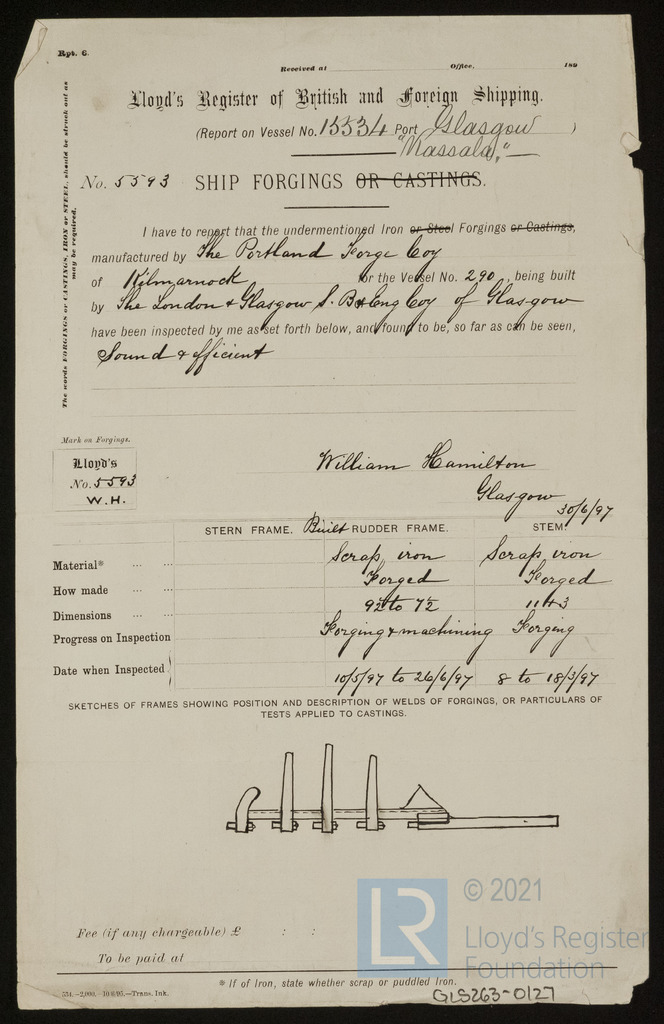 Rpt. 6.
Received at Office, 189
Lloyd's Register of British and Foreign Shipping.
(Report on Vessel No. 15534 Port Glasgow )
"Massala,"
No. 5593 SHIP FORGINGS OR CASTINGS.
The words FORGINGS or CASTINGS, IRON or STEEL, should be struck out as
may be required.
I have to report that the undermentioned Iron or Steel Forgings or Castings,
manufactured by The Portland Forge Coy
of Kilmarnock, for the Vessel No. 290, being built
by The London & Glasgow S. B & Eng Coy of Glasgow
have been inspected by me as set forth below, and found to be, so far as can be seen,
Sound & efficient
Mark on Forgings.
Lloyd's
No. 5593
W.H.
William Hamilton
Glasgow
30/6/97
STERN FRAME. Built RUDDER FRAME. STEM.
Material* Scrap iron Scrap iron
How made Forged Forged
Dimensions 9½ to 7½ 11 + 3
Progress on Inspection Forging & machining Forging
Date when Inspected 10/5/97 to 26/6/97 8 to 18/3/97
SKETCHES OF FRAMES SHOWING POSITION AND DESCRIPTION OF WELDS OF FORGINGS, OR PARTICULARS OF
TESTS APPLIED TO CASTINGS.
Fee (if any chargeable) £ : :
To be paid at
* If of Iron, state whether scrap or puddled Iron.
534.—2,000. 10/8/95.—Trans. Ink.
GLS263-0127
LR
© 2021
Lloyd's Register
Foundation